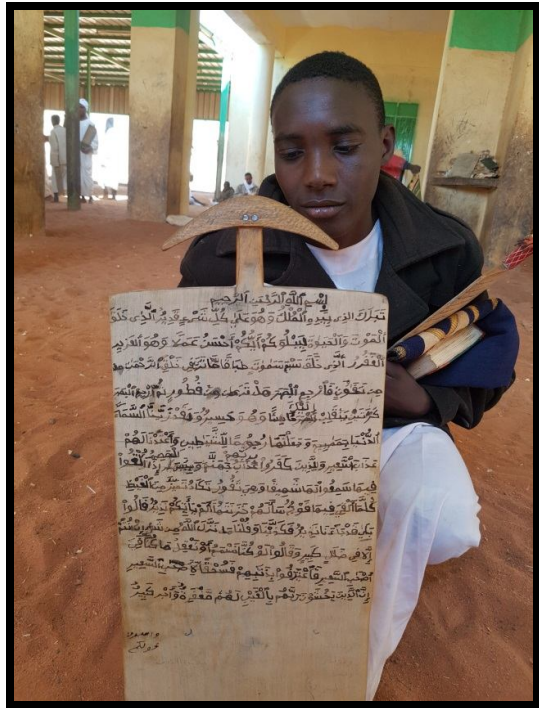 بسم الله الرحمن الرحيم
تبرك الذى بيده الملك وهو على كل شىء قدير الذى خلق
الموت والحيوة ليبلوكم أيكم أحسن عملا وهو العزيز
الغفور الذى خلق سبع سموت طباقا ما ترى فى خلق الرحمن
من تفوت فارجع البصر هل ترى من فطور ثم ارجع البصر
كرتين ينقلب إليك البصر خاسئا وهو حسير ولقد زينا السماء
الدنيا بمصبيح وجعلنها رجوما للشيطين وأعتدنا لهم
عذاب السعير وللذين كفروا بربهم عذاب جهنم وبيس المصير إذا ألقوا
فيها سمعوا لها شهيقا وهى تفور تكاد تميز من الغيظ
كلما ألقى فيها فوج سألهم خزنتها ألم يأتكم نذير قالوا
بلى قد جاءنا نذير فكذبنا وقلنا ما نزل الله من شىء إن أنتم
إلا فى ضلل كبير وقالوا لو كنا نسمع أو نعقل ما كنا فى
أصحب السعير فاعترفوا بذنبهم فسحقا لأصحب السعير
إن الذين يخشون ربهم بالغيب لهم مغفرة وأجر كبير
وأسروا
قولكم